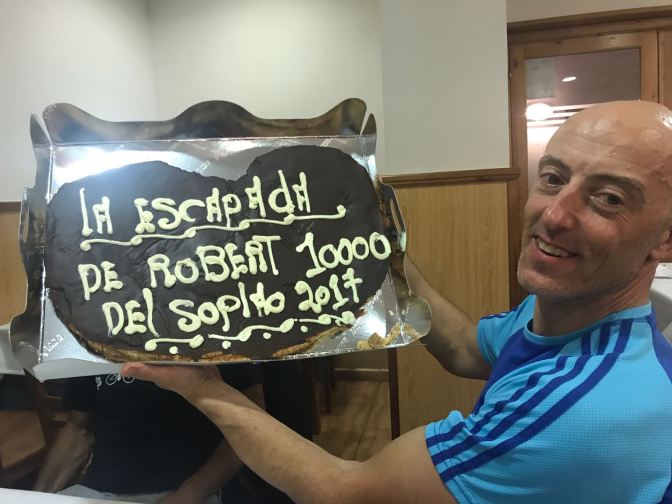 LA ESCAPADA
DE ROBERT 10000
DEL SOPLAO 2017